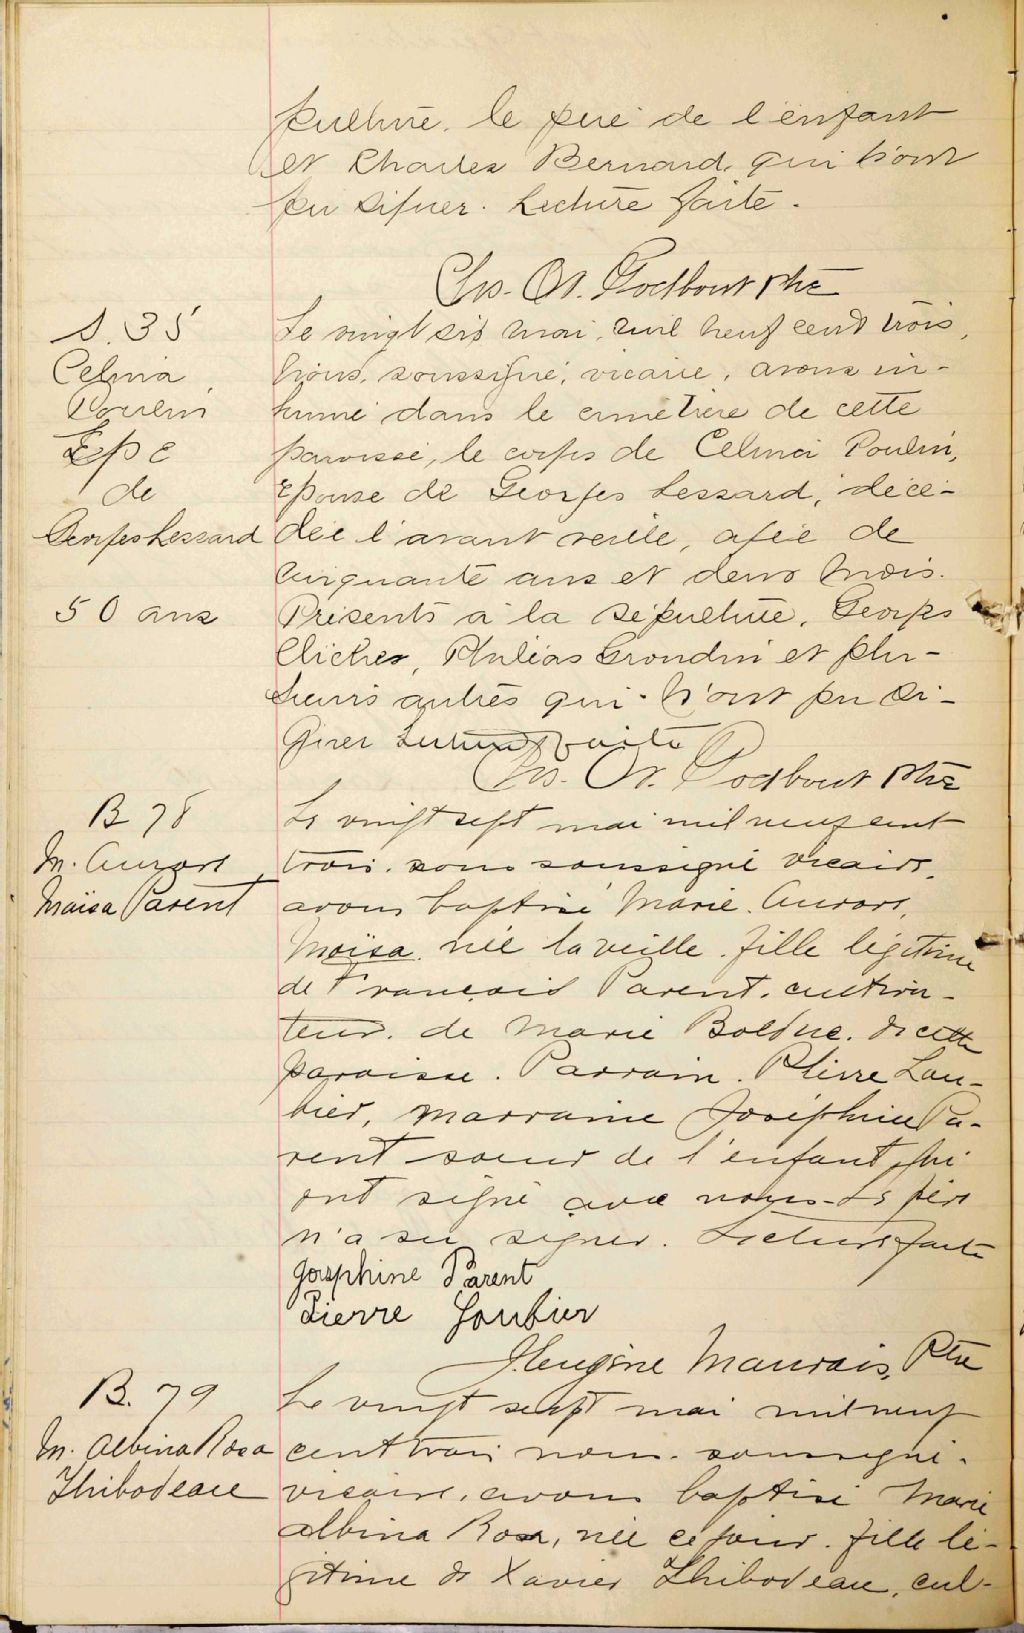 pulture, le père de l'enfant
et Charles Bernard, qui n'ont
pu signer. Lecture faite.
Chs. Od. Godbout Ptre
S. 35
Celina
Poulin
Epse
de
Georges Lessard
50 ans
Le vingt six mai, mil neuf cent trois,
Nous, soussigné, vicaire, avons in-
humé dans le cimetière de cette
paroisse, le corps de Celina Poulin,
Epouse de Georges Lessard, décé-
dée l'avant veille, agée de
cinquante ans et deux mois.
Présents à la sépulture, Georges
Cliches, Philias Grondin et plu-
sieurs autres qui n'ont pu si-
gner Lecture faite
Chs. Od. Godbout Ptre
B 78
M. Aurore
Moïsa Parent
Le vingt sept mai mil neuf cent
trois, nous soussigné vicaire,
avons baptisé Marie. Aurore,
Moïsa, née la veille, fille légitime
de François Parent, cultiva-
teur, de Marie Bolduc, de cette
paroisse. Parrain. Pierre Lou-
bier, marraine Joséphine Pa-
rent soeur de l'enfant qui
ont signé avec nous. Le père
n'a su signer. Lecture faite
Josphine Parent
Pierre Loubier
J. Eugène Maurais, Ptre
B. 79
M. Albina Rosa
Thibodeau
Le vingt sept mai mil neuf
cent trois nous, soussigné,
vicaire, avons baptisé Marie
Albina Rosa, née ce jour, fille lé-
gitime de Xavier Thibodeau, cul-